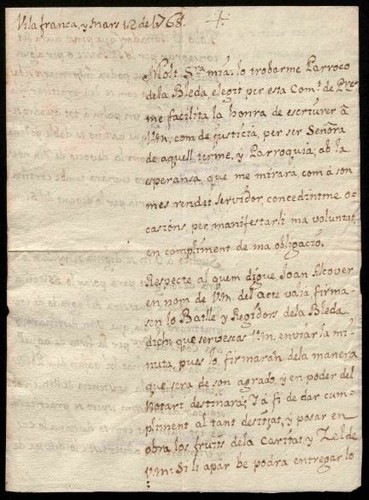 Vila franca, y Mars 12 de 1768.
Molt S.ra mia: lo trobarme Parroco
dela Bleda elegit per esta Com.t de Pre.s
me facilita la honra de escriurer á
Vm, com de justicia, per ser Señora
de aquell terme, y Parroquia, ab la
esperansa que me mirara com á son
mes rendit servidor, concedintme oc-
casións per manifestarli ma voluntat,
en compliment de ma obligació.
Respecte al quem digué Joan Alcover
en nom de Vm. del acte vaja firma-
son lo Batlle y Regidors dela Bleda
dich, que servescas Vm, enviar la mi-
nuta, pues lo firmarán dela manera
que sera de son agrado, y en poder del
Notari destinará; Y á fi de dar cum-
pliment al tant desitjat, y posar en
obra los fruits dela Caritat, y Zel de
Vm: Si li apar be podrá entregar lo